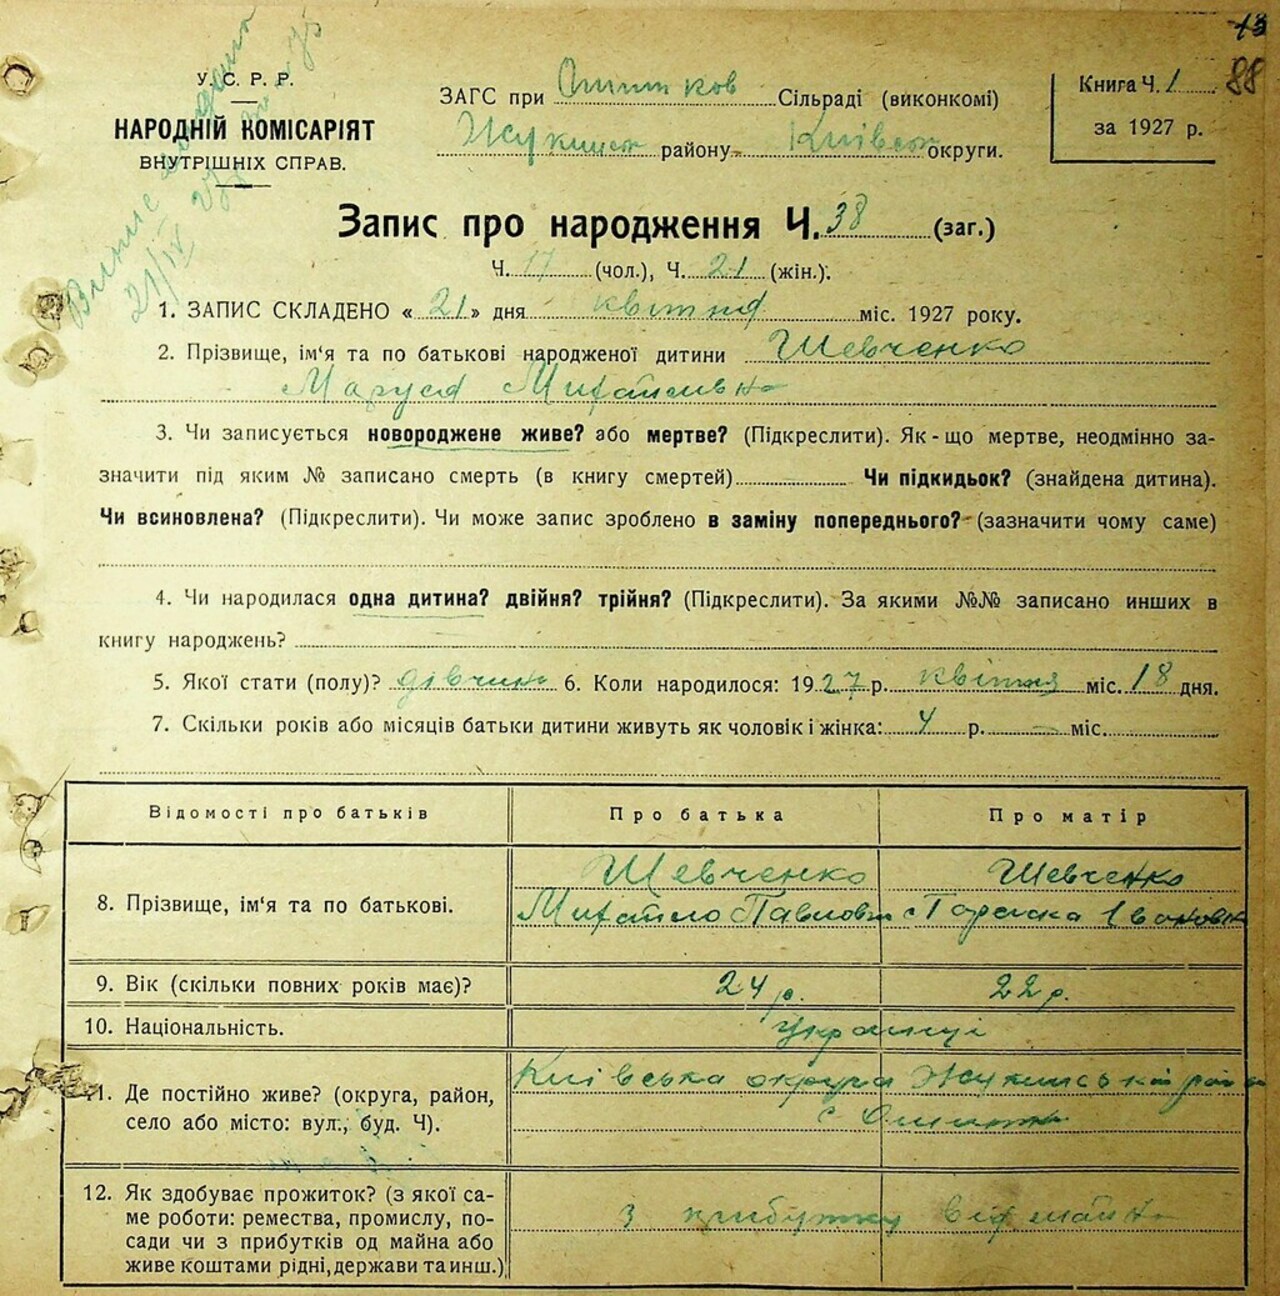 13
88
У. С. Р. Р.
НАРОДНІЙ КОМІСАРІЯТ
ВНУТРІШНІХ СПРАВ.
ЗАГС при Сільраді (виконкомі)
району Київськ округи.
Книга Ч. 1
за 1927 р.
Запис про народження Ч. 38 (заг.)
Ч. 17 (чол.), Ч. 21 (жін.).
1. ЗАПИС СКЛАДЕНО « 21 » дня квітня міс. 1927 року.
2. Прізвище, ім‘я та по батькові народженої дитини Шевченко
Маруся Михайлівна
3. Чи записується новороджене живе? або мертве? (Підкреслити). Як-що мертве, неодмінно за-
значити під яким № записано смерть (в книгу смертей) Чи підкидьок? (знайдена дитина).
Чи всиновлена? (Підкреслити). Чи може запис зроблено в заміну попереднього? (зазначити чому саме)
4. Чи народилася одна дитина? двійня? трійня? (Підкреслити). За якими №№ записано инших в
книгу народжень?
5. Якої стати (полу)? дівчина 6. Коли народилося: 1927 р. квітня міс. 18 дня.
7. Скільки років або місяців батьки дитини живуть як чоловік і жінка: 4 р. — міс.
Відомості про батьків Про батька Про матір
8. Прізвище, ім‘я та по батькові. Шевченко Шевченко
Михайло Павлович Івановна
9. Вік (скільки повних років має)? 24 р. 22 р.
10. Національність. Українці
11. Де постійно живе? (округа, район, село або місто: вул., буд. Ч). Київська округа Жукинський район
с.
12. Як здобуває прожиток? (з якої са-
ме роботи: ремества, промислу, по-
сади чи з прибутків од майна або
живе коштами рідні, держави та инш.)
З прибутку від майна